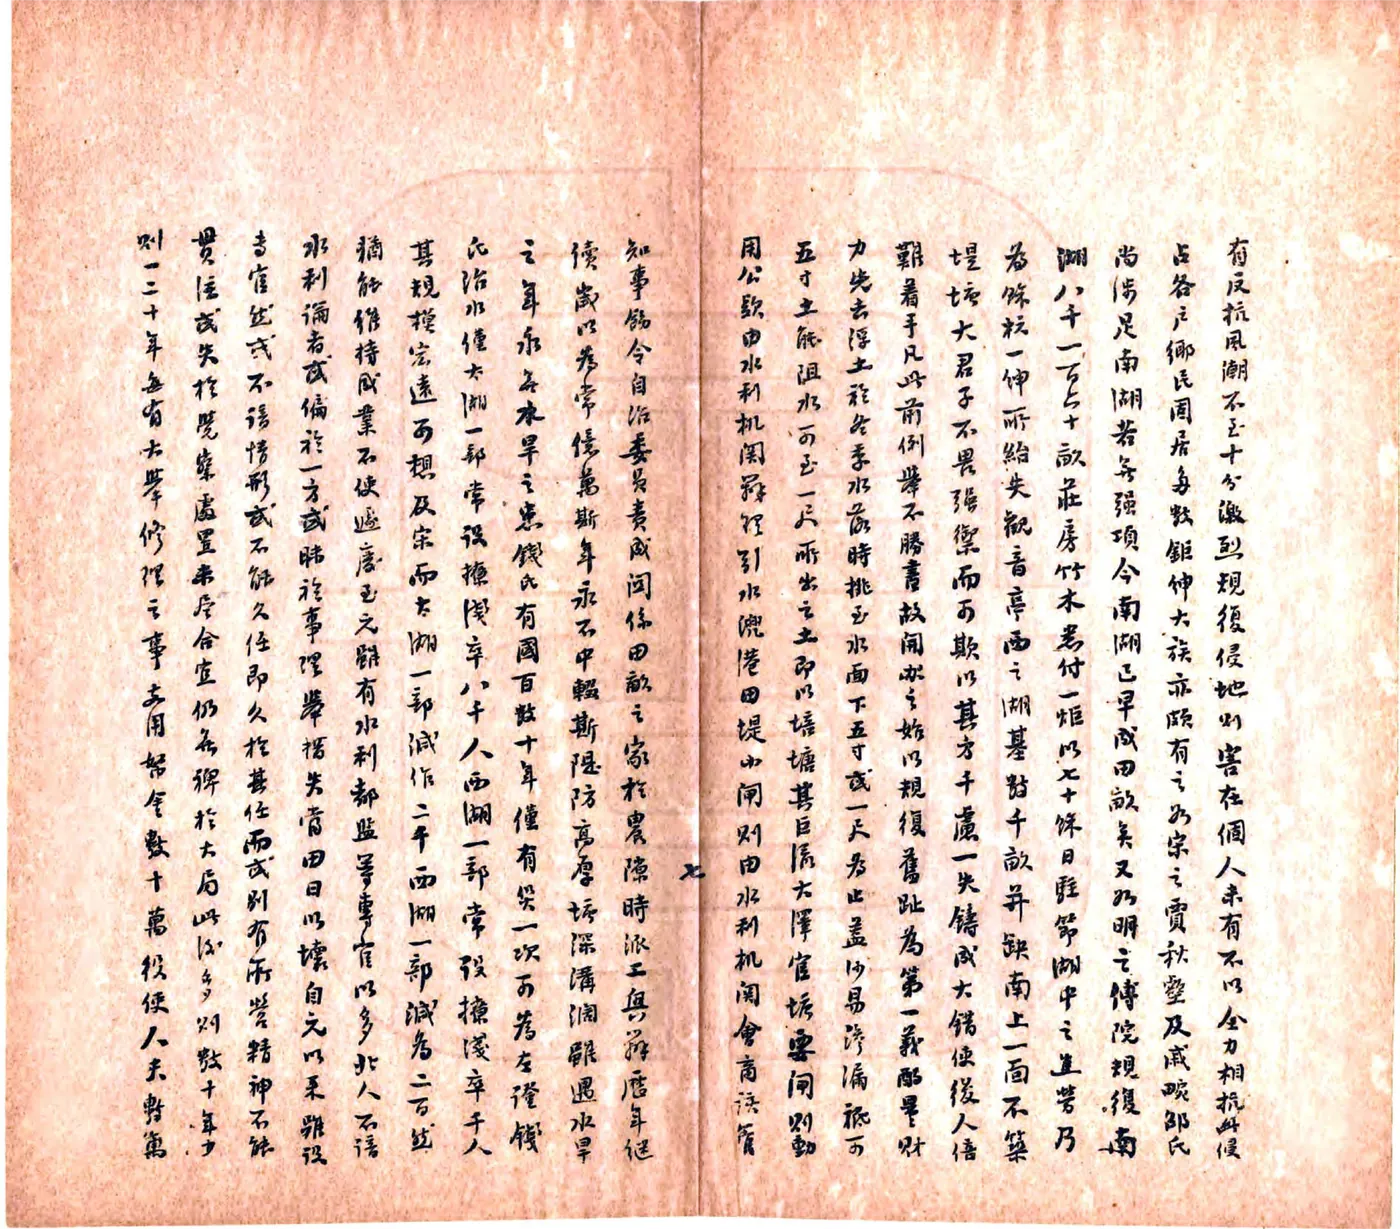 有反抗風潮不至十分激烈規復侵地則害在個人未有不以全力相抗此侵
占各戶鄉民固居多數鉅紳大族亦頗有之如宋之賈秋壑及戚畹鄒氏
尚涉足南湖若無強項令南湖已早成田畝矣又如明之傅院規復南
湖八千一百六十畝莊房竹木悉付一炬以七十餘日駐節湖中之進勞乃
為餘杭一紳所紿失觀音亭西之湖基對千畝并缺南上一面不築
堤塘大君子不畏強禦而可欺以其方千慮一失鑄成大錯使後人倍
難着手凡此前例舉不勝書故開辦之始以規復舊趾為第一義酌量財
力先去浮土於冬季水落時挑至水面下五寸或一尺為止蓋沙易滲漏祗可
五寸土能阻水可至一尺所出之土即以培塘其巨流大澤官塘要閘則動
用公款由水利機関辦理引水港田堤小閘則由水利機関會商該管
七
知事飭令自治委員責成関係田畝之家於農隙時派工興辦歷年繼
續歲以為常億萬斯年永不中輟斯隄防高厚塘深溝濶雖遇水旱
之年永無水旱之患錢氏有國百數十年僅有災一次可為左證錢
氏治水僅太湖一部常設撩淺卒八千人西湖一部常設撩淺卒千人
其規模宏遠可想及宋而太湖一部減作二千西湖一部減為二百然
猶能維持成業不使遽廢至元雖有水利都監等專官以多北人不諳
水利論者或偏於一方或昧於事理舉措失當由日以壞自元以來雖設
專官然或不諳情形或不能久任即久於其任而或別有所營精神不能
貫注或失於覺察處置未盡合宜仍無裨於大局此後多則數十年少
則一二十年每有大舉修理之事支用帑金數十萬役使人夫數萬